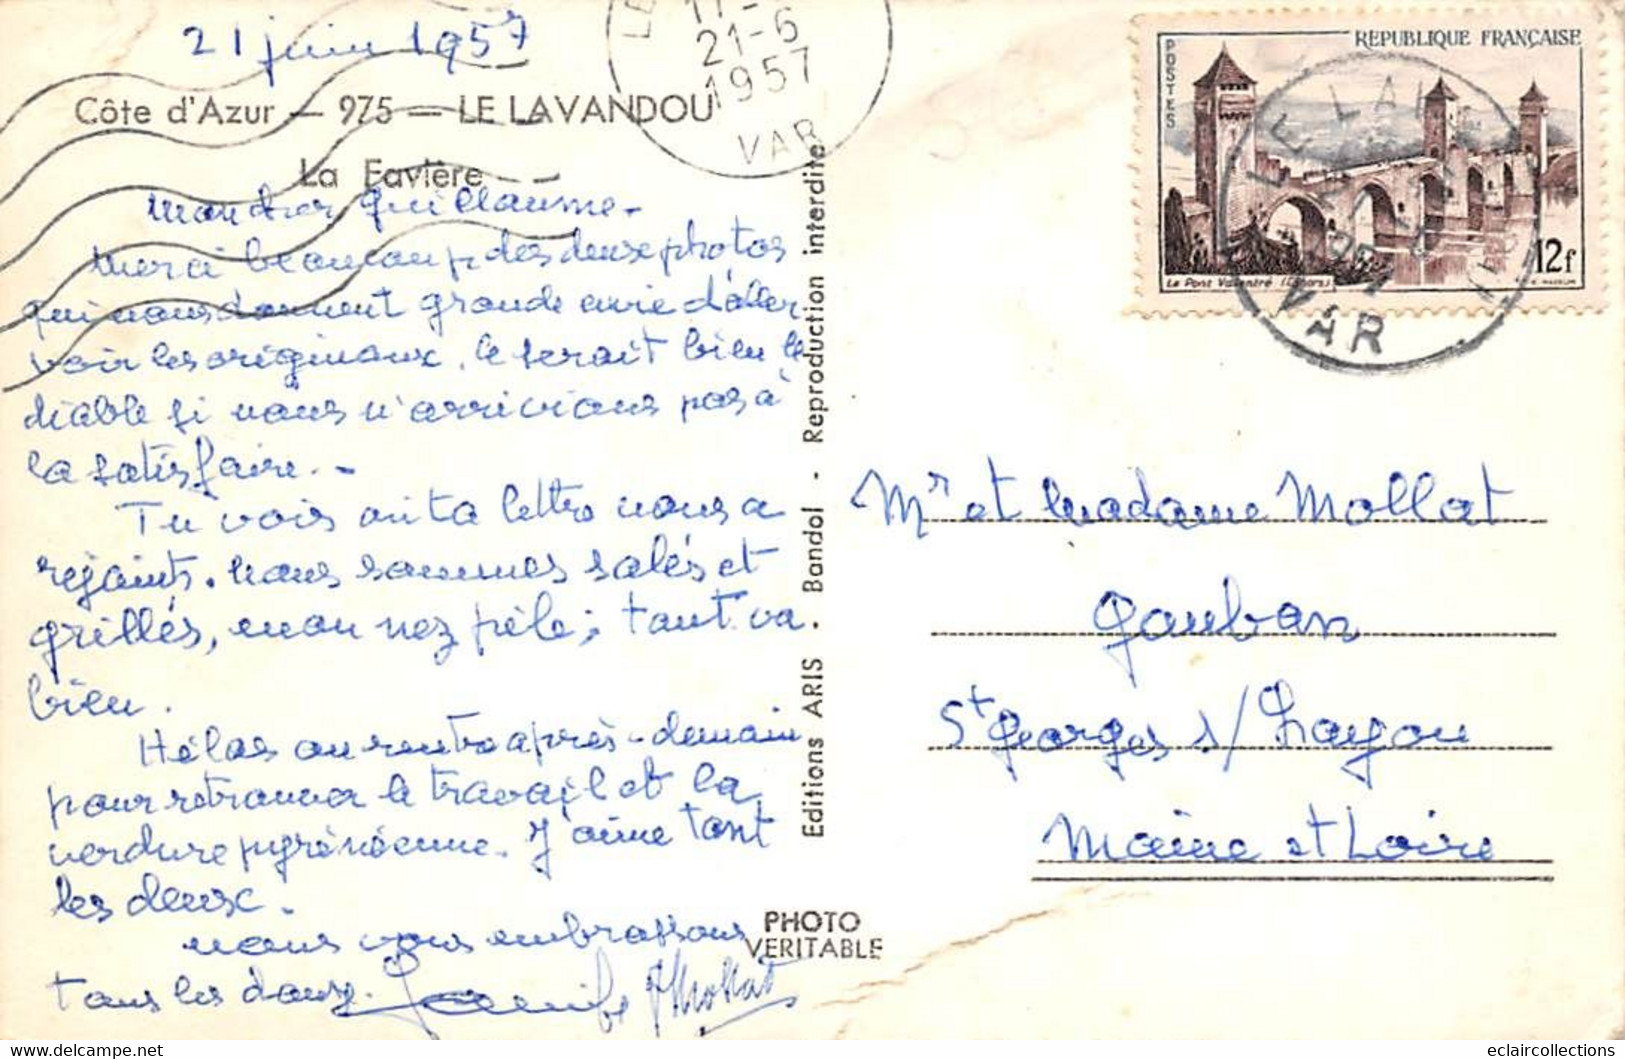 21 juin 1957
Côte d'Azur — 975 — LE LAVANDOU
La Favière
Mon cher Guillaume.
Merci beaucoup des deux photos
qui nous donnent grande envie d'aller
voir les originaux. Ce serait bien le
diable si nous n'arrivions pas à
la satisfaire.
Tu vois que ta lettre nous a
rejoints. Nous sommes salés et
grillés, mon nez pèle ; tout va
bien.
Hélas on rentre après-demain
pour retrouver le travail et la
verdure pyrénéenne. J'aime tant
les deux.
Nous vous embrassons
tous les deux.
Mollat
17-
21-6
1957
VAR
Editions ARIS. Bandol - Reproduction interdite
PHOTO
VERITABLE
REPUBLIQUE FRANÇAISE
POSTES
12f
Le Pont Valentré (Cahors)
VAR
Mr et Madame Mollat
Gauban
St Georges s/ Layon
Maine et Loire
www.delcampe.net
eclaircollections